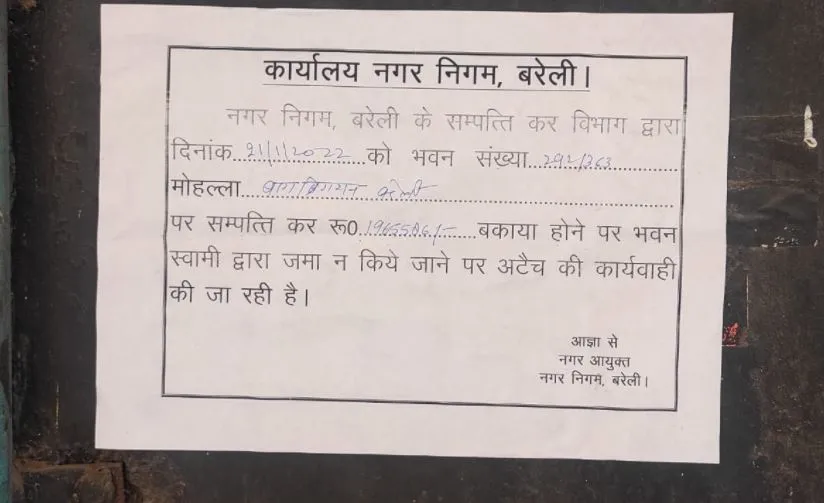 कार्यालय नगर निगम, बरेली।
नगर निगम, बरेली के सम्पत्ति कर विभाग द्वारा
दिनांक..21/1/2022..को भवन संख्या..292/363..
मोहल्ला
पर सम्पत्ति कर रू0..1965506/-..बकाया होने पर भवन
स्वामी द्वारा जमा न किये जाने पर अटैच की कार्यवाही
की जा रही है।
आज्ञा से
नगर आयुक्त
नगर निगम, बरेली।